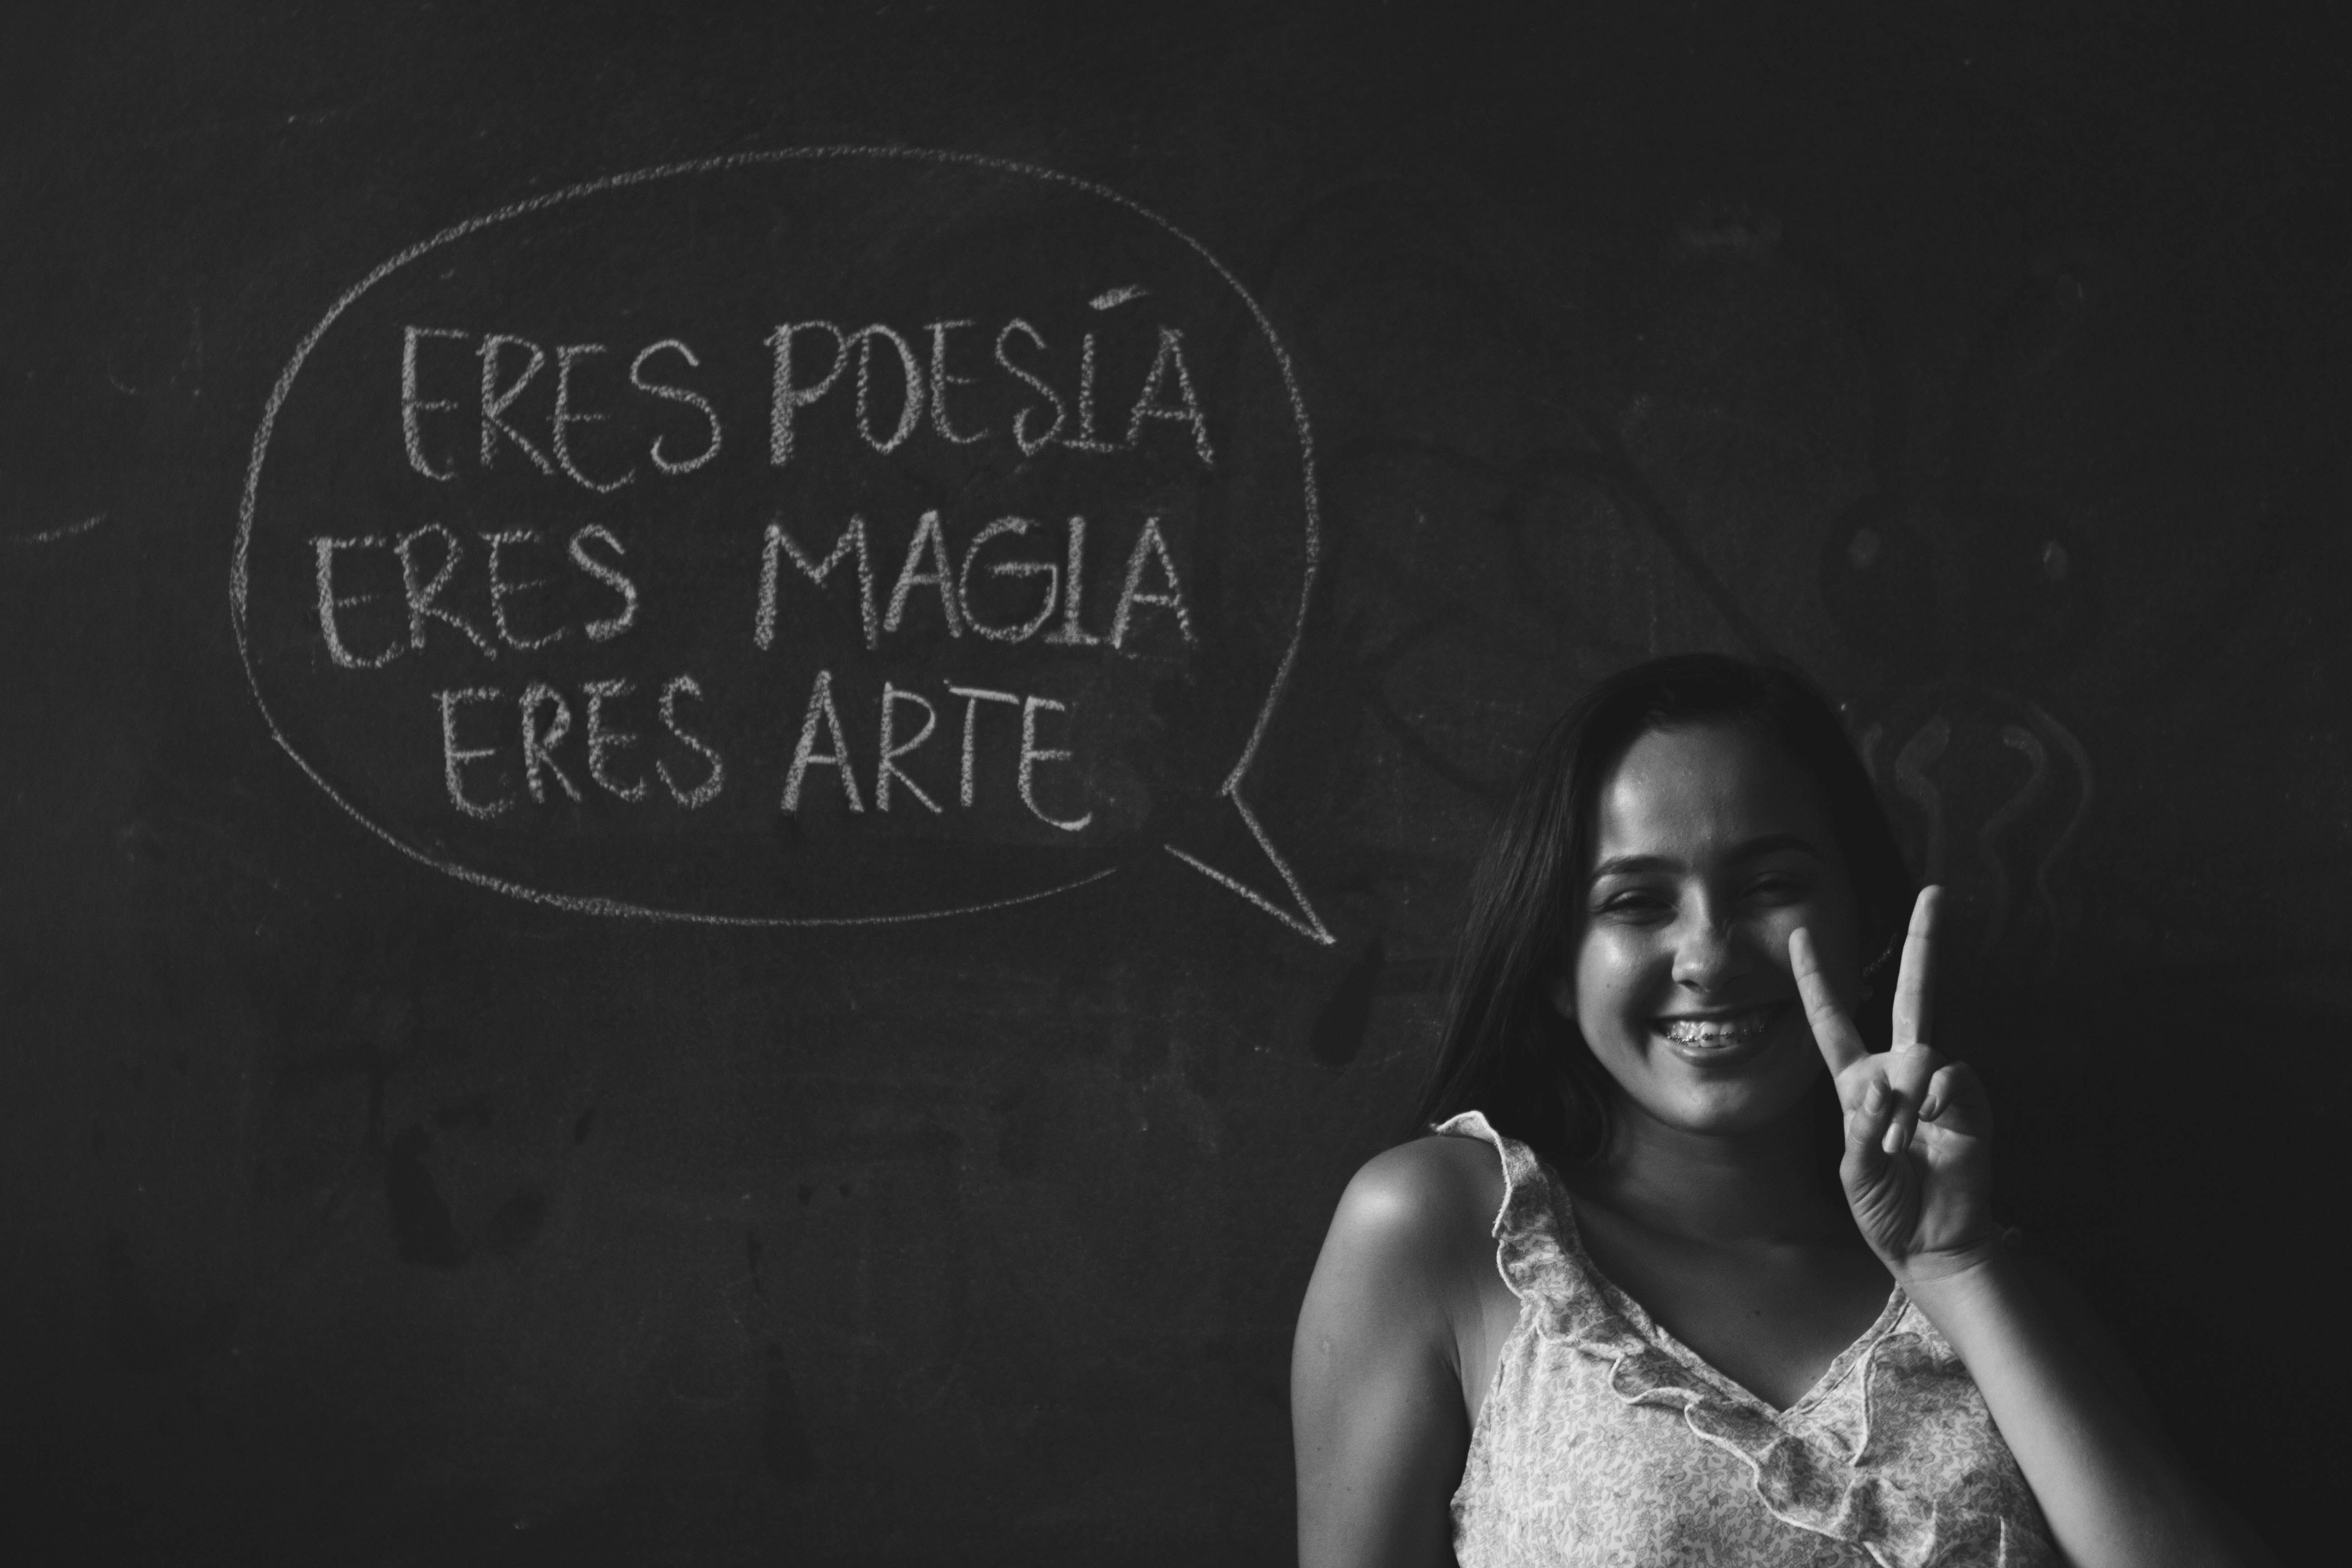 ERES POESÍA
ERES MAGIA
ERES ARTE